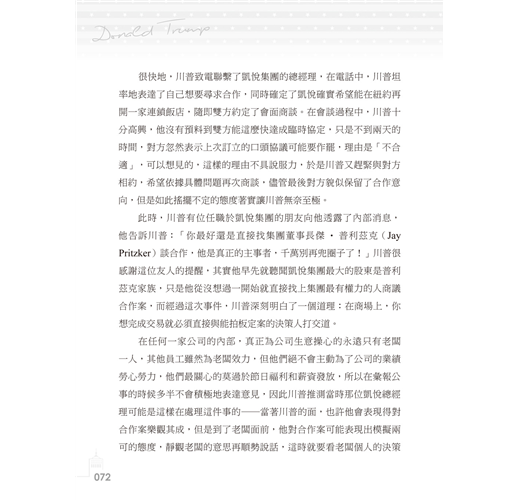 Donald Trump
很快地，川普致電聯繫了凱悅集團的總經理，在電話中，川普坦
率地表達了自己想要尋求合作，同時確定了凱悅確實希望能在紐約再
開一家連鎖飯店，隨即雙方約定了會面商談。在會談過程中，川普十
分高興，他沒有預料到雙方能這麼快達成臨時協定，只是不到兩天的
時間，對方忽然表示上次訂立的口頭協議可能要作罷，理由是「不合
適」，可以想見的，這樣的理由不具說服力，於是川普又趕緊與對方
相約，希望依據具體問題再次商談，儘管最後對方貌似保留了合作意
向，但是如此搖擺不定的態度著實讓川普無奈至極。
此時，川普有位任職於凱悅集團的朋友向他透露了內部消息，
他告訴川普：「你最好還是直接找集團董事長傑‧普利茲克（Jay
Pritzker）談合作，他是真正的主事者，千萬別再兜圈子了！」川普很
感謝這位友人的提醒，其實他早先就聽聞凱悅集團最大的股東是普利
茲克家族，只是他從沒想過一開始就直接找上集團最有權力的人商議
合作案，而經過這次事件，川普深刻明白了一個道理：在商場上，你
想完成交易就必須直接與能拍板定案的決策人打交道。
在任何一家公司的內部，真正為公司生意操心的永遠只有老闆
一人，其他員工雖然為老闆效力，但他們絕不會主動為了公司的業績
勞心勞力，他們最關心的莫過於節日福利和薪資發放，所以在彙報公
事的時候多半不會積極地表達意見，因此川普推測當時那位凱悅總經
理可能是這樣在處理這件事的——當著川普的面，也許他會表現得對
合作案樂觀其成，但是到了老闆面前，他對合作案可能表現出模擬兩
可的態度，靜觀老闆的意思再順勢說話，這時就要看老闆個人的決策
072